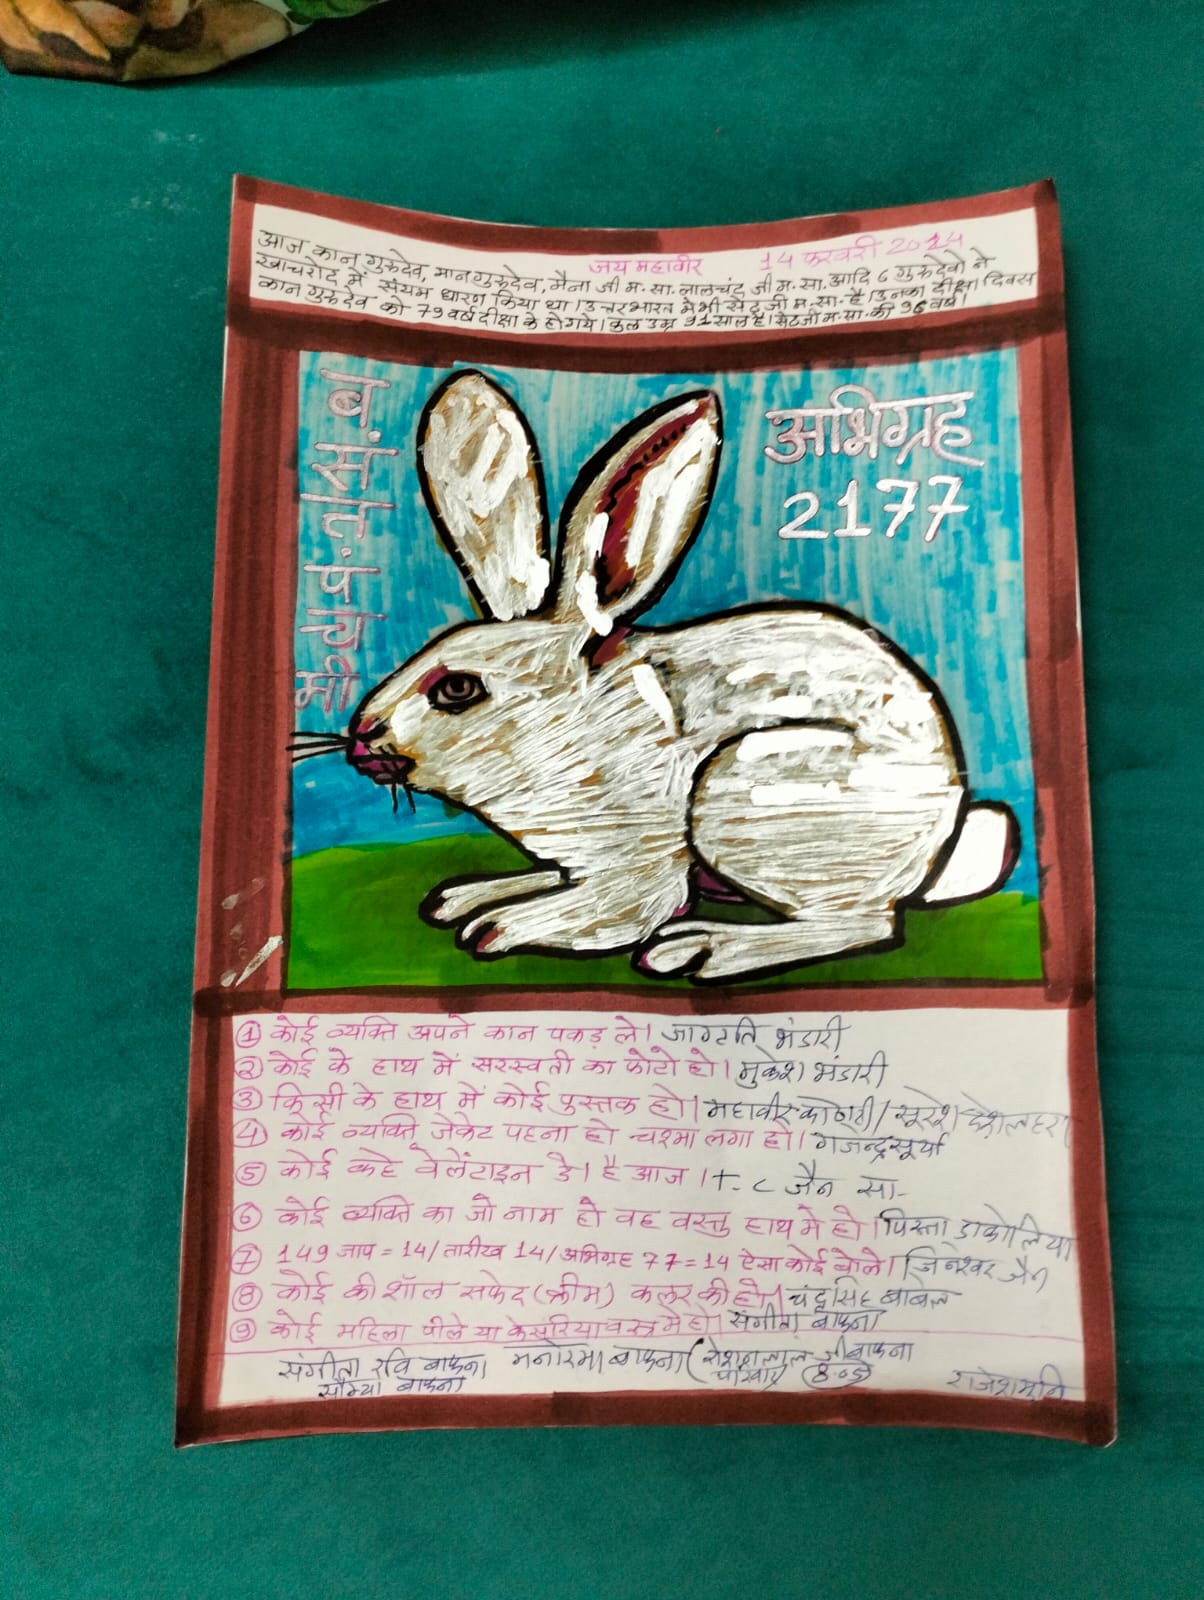 जय महावीर 14 फरवरी 2024
आज कान गुरूदेव, मान गुरूदेव, मैना जी म. सा. लालचंद जी म. सा. आदि ८ गुरूदेवो ने
खाचरोद में संयम धारण किया था। उत्तरभारत मे भी सेठजी म. सा. है। उनका दीक्षा दिवस
कान गुरूदेव को 79 वर्ष दीक्षा के हो गये। कुल उम्र 91 साल है। सेठजी म. सा. की 96 वर्ष।
ब. सं. त. पं. च मी
अभिग्रह
2177
① कोई व्यक्ति अपने कान पकड़ ले। जागृति भंडारी
② कोई के हाथ में सरस्वती का फोटो हो। मुकेश भंडारी
③ किसी के हाथ में कोई पुस्तक हो। महावीर कोठारी / सुरेश देशलहरा
④ कोई व्यक्ति जेकेट पहना हो चश्मा लगा हो। गजेन्द्र सूर्या
⑤ कोई कहे वेलेंटाइन डे। है आज। T. C जैन सा-
⑥ कोई व्यक्ति का जो नाम हो वह वस्तु हाथ मे हो। पिस्ता डाकोलिया
⑦ 149 जाप = 14/ तारीख 14/ अभिग्रह 77 = 14 ऐसा कोई बोले। जिनेश्वर जैन
⑧ कोई की शॉल सफेद (क्रीम) कलर की हो। चंद्रसिंह बाबेल
⑨ कोई महिला पीले या केसरिया वस्त्र मे हो। संगीता बाफना
संगीता रवि बाफना मनोरमा बाफना ( रोशनलाल जी बाफना
सौम्या बाफना परिवार राजेशमुनि